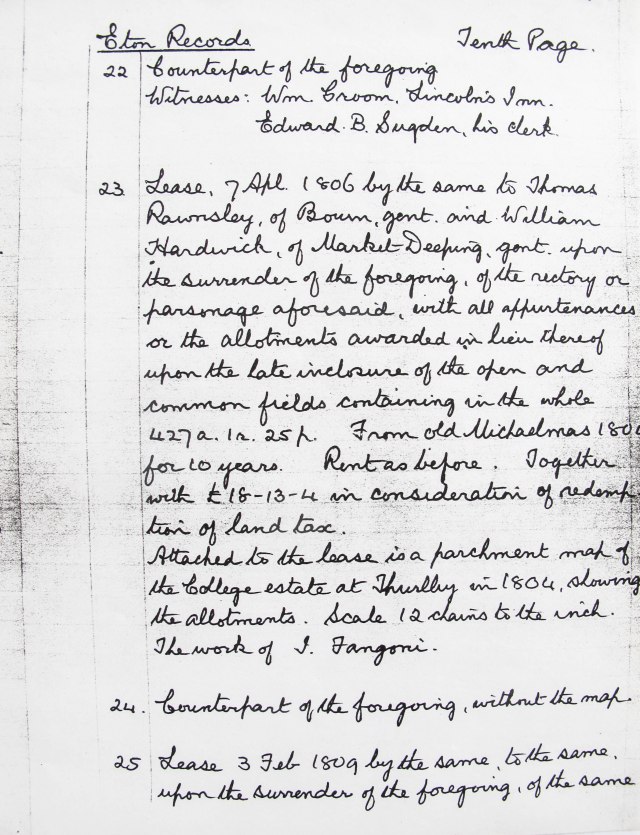 Eton Records Tenth Page.
22 Counterpart of the foregoing
Witnesses: Wm Groom, Lincoln's Inn.
Edward B. Sugden, his clerk.
23. Lease, 7 Apl. 1806 by the same to Thomas
Rawnsley, of Bourn, gent. and William
Hardwick, of Market-Deeping, gent. upon
the surrender of the foregoing, of the rectory or
parsonage aforesaid, with all appurtenances
or the allotments awarded in lieu thereof
upon the late inclosure of the open and
common fields containing in the whole
427a. 1r. 25p. From old Michaelmas 180
for 10 years. Rent as before. Together
with £18-13-4 in consideration of redemp
tion of land tax.
Attached to the lease is a parchment map of
the College estate at Thurlby in 1804, showing
the allotments. Scale 12 chains to the inch.
The work of I. Fangoni.
24. Counterpart of the foregoing, without the map.
25 Lease 3 Feb 1809 by the same, to the same,
upon the surrender of the foregoing, of the same